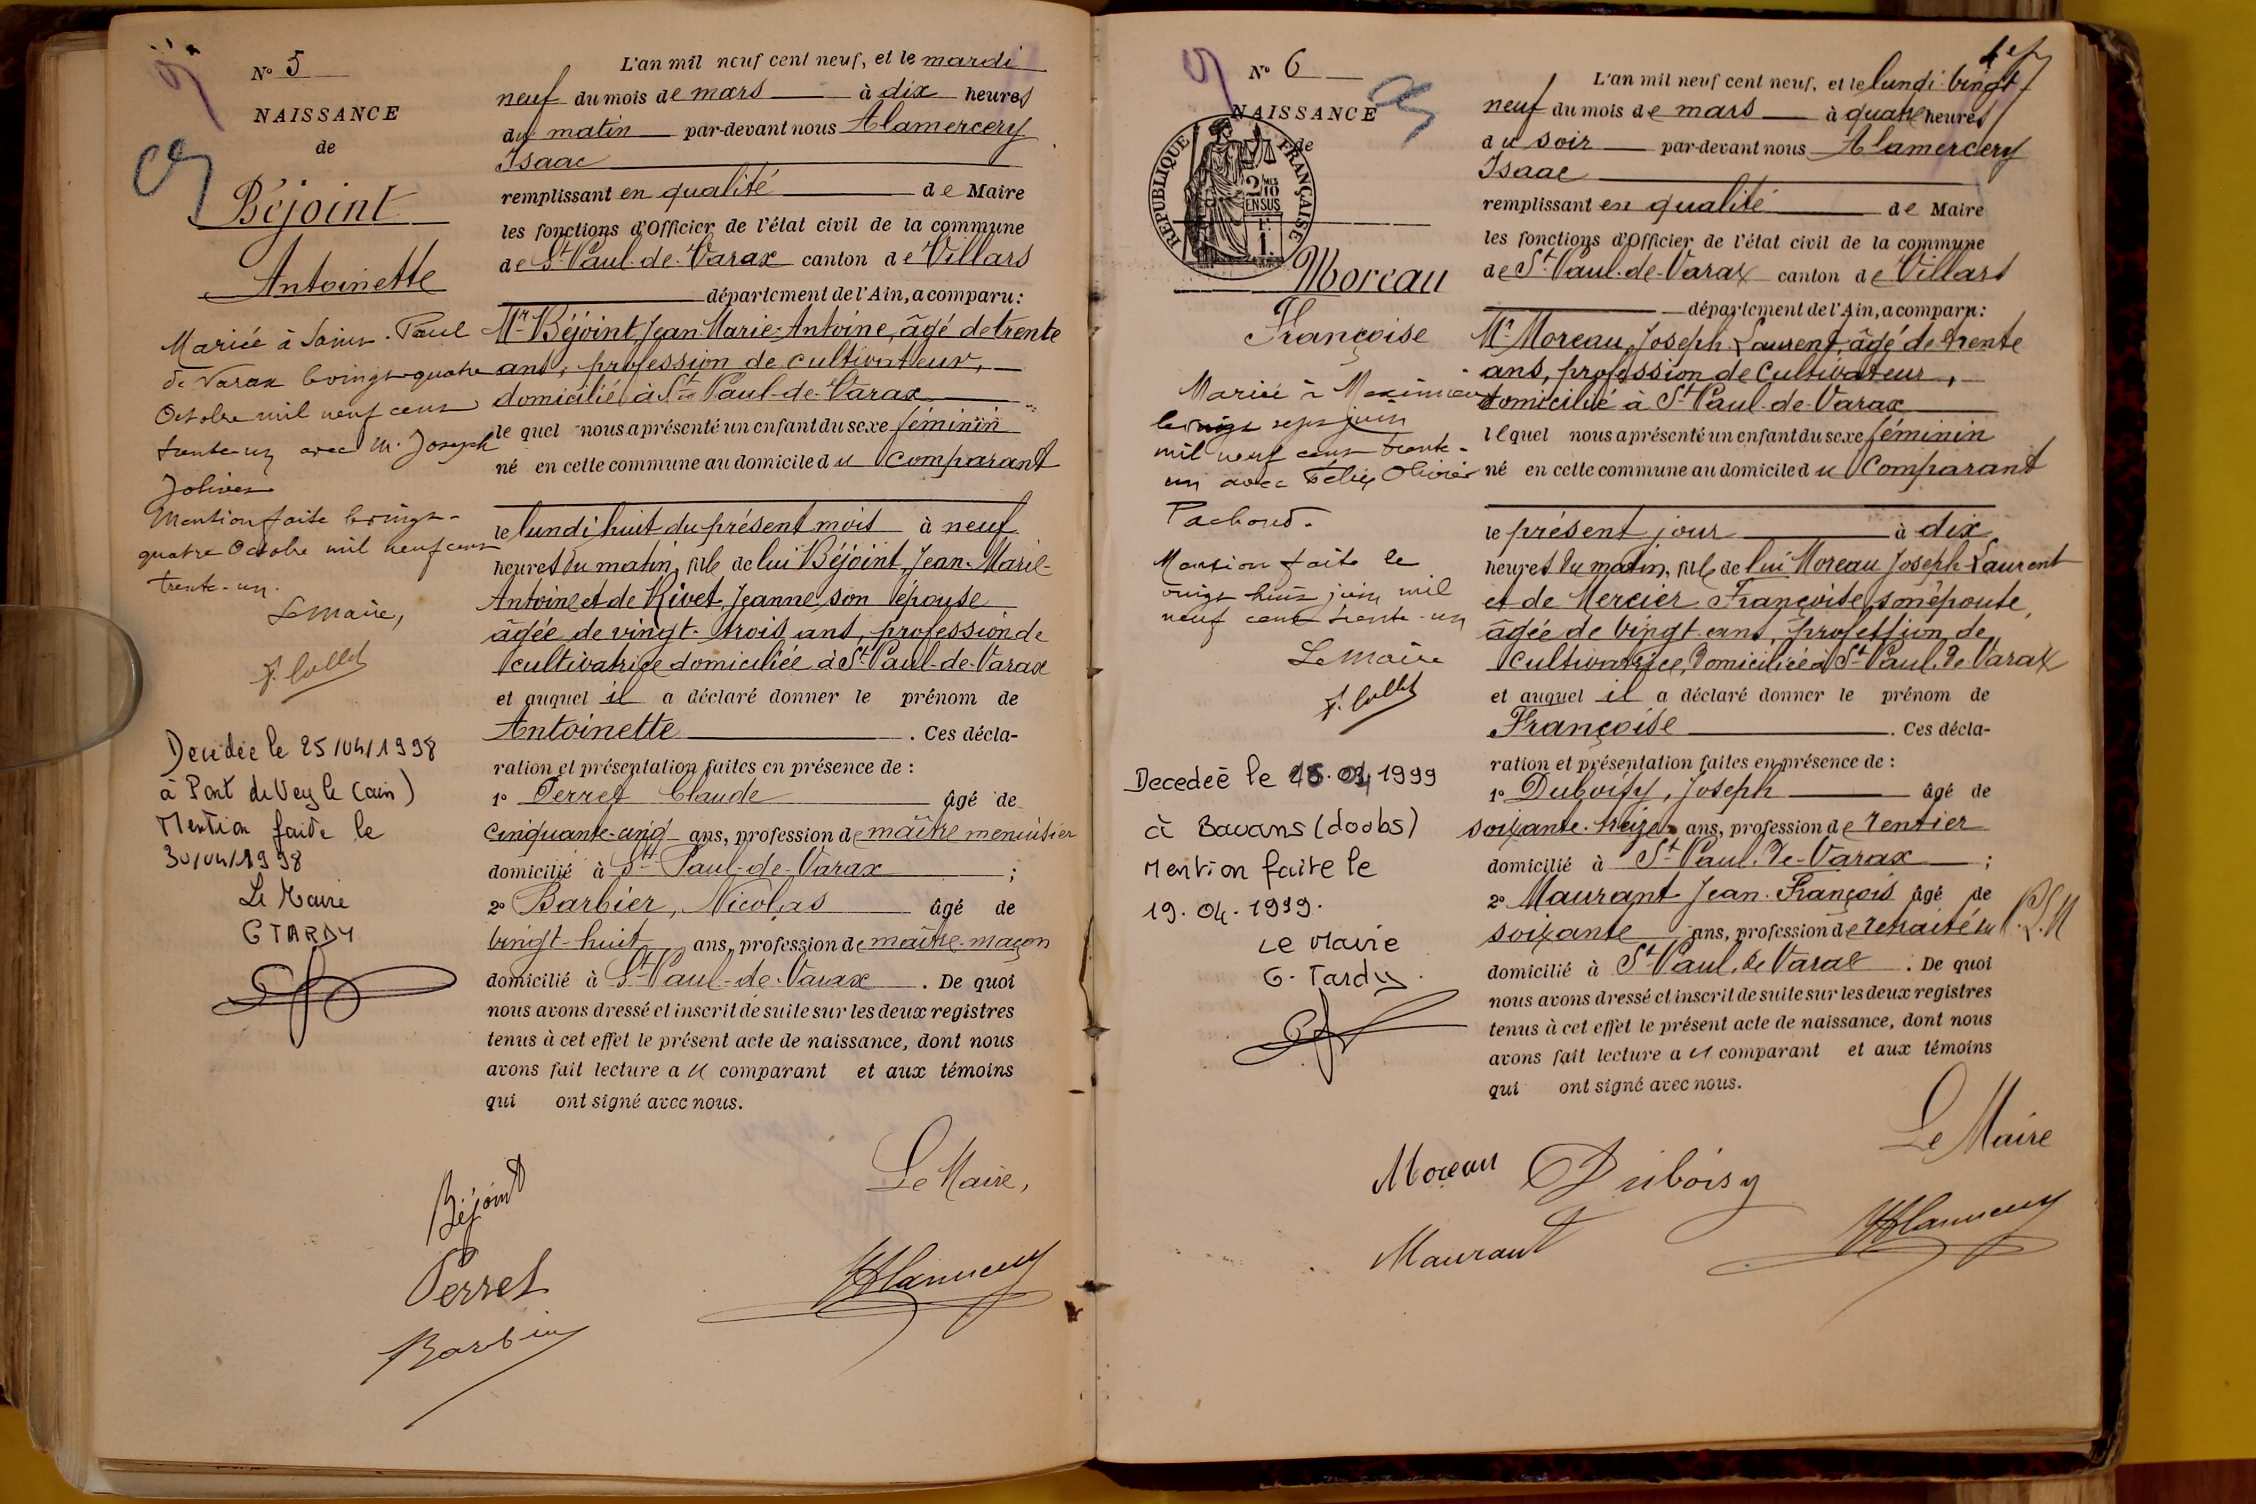 N° 5
NAISSANCE
de
Béjoint
Antoinette
Mariée à Saint-Paul
de Varax le vingt-quatre
Octobre mil neuf cent
trente-un avec M. Joseph
Jolivet
Mention faite le vingt-
quatre Octobre mil neuf cent
trente-un.
Le Maire,
Décédée le 25/04/1998
à Pont de Veyle (ain)
Mention faite le
30/04/1998
Le Maire
G TARDY
L'an mil neuf cent neuf, et le mardi
neuf du mois de mars à dix heures
du matin par-devant nous Alamercery
Isaac
remplissant en qualité de Maire
les fonctions d'Officier de l'état civil de la commune
de St Paul-de-Varax canton de Villars
département de l'Ain, a comparu:
Mr Béjoint, Jean-Marie-Antoine, âgé de trente
ans, profession de cultivateur,
domicilié à St Paul-de-Varax
le quel nous a présenté un enfant du sexe féminin
né en cette commune au domicile du Comparant
le lundi huit du présent mois à neuf
heures du matin, fille de lui Béjoint, Jean-Marie-
Antoine et de Rivet, Jeanne, son épouse
âgée de vingt-trois ans, profession de
cultivatrice domiciliée à St Paul-de-Varax
et auquel il a déclaré donner le prénom de
Antoinette. Ces décla-
ration et présentation faites en présence de :
1° Perret Claude âgé de
cinquante-cinq ans, profession de maître menuisier
domicilié à St Paul-de-Varax ;
2° Barbier, Nicolas âgé de
vingt-huit ans, profession de maître-maçon
domicilié à St Paul-de-Varax. De quoi
nous avons dressé et inscrit de suite sur les deux registres
tenus à cet effet le présent acte de naissance, dont nous
avons fait lecture au comparant et aux témoins
qui ont signé avec nous.
Le Maire,
Béjoint
Perret
Barbier
N° 6
NAISSANCE
de
RÉPUBLIQUE FRANÇAISE
2/10 MES
EN SUS
1F
Moreau
Françoise
Mariée à Meximieux
le vingt sept juin
mil neuf cent trente-
un avec Félix Olivier
Pachoud.
Mention faite le
vingt huit juin mil
neuf cent trente-un
Le Maire
Decedeé le 15.04 1999
à Bavans (doubs)
Mention faite le
19.04.1999.
Le Maire
G. Tardy
L'an mil neuf cent neuf, et le lundi vingt
neuf du mois de mars à quatre heures
du soir par-devant nous Alamercery
Isaac
remplissant en qualité de Maire
les fonctions d'Officier de l'état civil de la commune
de St Paul-de-Varax canton de Villars
département de l'Ain, a comparu:
Mr Moreau, Joseph Laurent, âgé de trente
ans, profession de Cultivateur,
domicilié à St Paul-de-Varax
lequel nous a présenté un enfant du sexe féminin
né en cette commune au domicile du Comparant
le présent jour à dix
heures du matin, fille de lui Moreau Joseph-Laurent
et de Mercier Françoise, son épouse,
âgée de vingt ans, profession de
Cultivatrice, domiciliée à St Paul-de-Varax
et auquel il a déclaré donner le prénom de
Françoise. Ces décla-
ration et présentation faites en présence de :
1° Duboisy, Joseph âgé de
soixante-treize ans, profession de rentier
domicilié à St Paul-de-Varax ;
2° Maurant Jean-François âgé de
soixante ans, profession de retraité du P.L.M
domicilié à St Paul de Varax. De quoi
nous avons dressé et inscrit de suite sur les deux registres
tenus à cet effet le présent acte de naissance, dont nous
avons fait lecture au comparant et aux témoins
qui ont signé avec nous.
Le Maire
Moreau Duboisy
Maurant